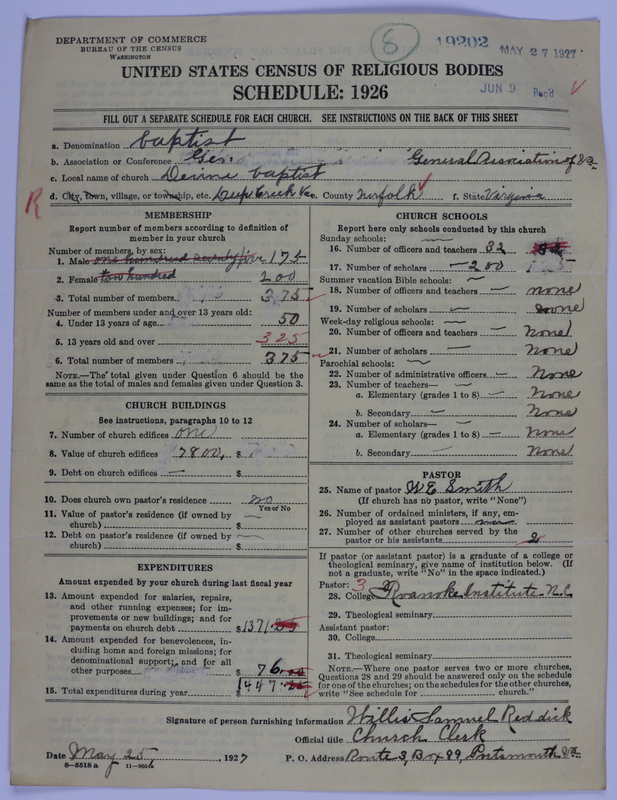 DEPARTMENT OF COMMERCE
BUREAU OF THE CENSUS
WASHINGTON
6
19202
MAY 27 1927
UNITED STATES CENSUS OF RELIGIOUS BODIES
SCHEDULE: 1926
JUN 9 Rec'd
FILL OUT A SEPARATE SCHEDULE FOR EACH CHURCH. SEE INSTRUCTIONS ON THE BACK OF THIS SHEET
a. Denomination baptist
b. Association or Conference Gen. General Association of Va.
c. Local name of church Devine baptist
R
d. City, town, village, or township, etc. Deep Creek Va e. County Norfolk f. State Virginia
MEMBERSHIP
Report number of members according to definition of member in your church
Number of members, by sex:
1. Male one hundred seventy five 175
2. Female two hundred 200
3. Total number of members 375
Number of members under and over 13 years old:
4. Under 13 years of age 50
5. 13 years old and over 325
6. Total number of members 375
NOTE.—The total given under Question 6 should be the same as the total of males and females given under Question 3.
CHURCH BUILDINGS
See instructions, paragraphs 10 to 12
7. Number of church edifices one
8. Value of church edifices 7800, $
9. Debt on church edifices — $
10. Does church own pastor's residence no
Yes or No
11. Value of pastor's residence (if owned by church) $
12. Debt on pastor's residence (if owned by church) $
EXPENDITURES
Amount expended by your church during last fiscal year
13. Amount expended for salaries, repairs, and other running expenses; for improvements or new buildings; and for payments on church debt $1371.
14. Amount expended for benevolences, including home and foreign missions; for denominational support; and for all other purposes $ 76.00
15. Total expenditures during year $1447.
CHURCH SCHOOLS
Report here only schools conducted by this church
Sunday schools: —
16. Number of officers and teachers 32
17. Number of scholars —200
Summer vacation Bible schools: —
18. Number of officers and teachers — none
19. Number of scholars — none
Week-day religious schools: —
20. Number of officers and teachers — None
21. Number of scholars — None
Parochial schools: —
22. Number of administrative officers — None
23. Number of teachers— —
a. Elementary (grades 1 to 8) — None
b. Secondary — None
24. Number of scholars— —
a. Elementary (grades 1 to 8) — None
b. Secondary — None
PASTOR
25. Name of pastor W E Smith
(If church has no pastor, write "None")
26. Number of ordained ministers, if any, employed as assistant pastors
27. Number of other churches served by the pastor or his assistants 2
If pastor (or assistant pastor) is a graduate of a college or theological seminary, give name of institution below. (If not a graduate, write "No" in the space indicated.)
Pastor: 3
28. College Roanoke Institute N.C.
29. Theological seminary
Assistant pastor:
30. College
31. Theological seminary
NOTE.—Where one pastor serves two or more churches, Questions 28 and 29 should be answered only on the schedule for one of the churches; on the schedules for the other churches, write "See schedule for church."
Signature of person furnishing information Willis Samuel Reddick
Official title Church Clerk
Date May 25, 1927 P. O. Address Route 3, Box 99, Portsmouth Va.
8—5518 a